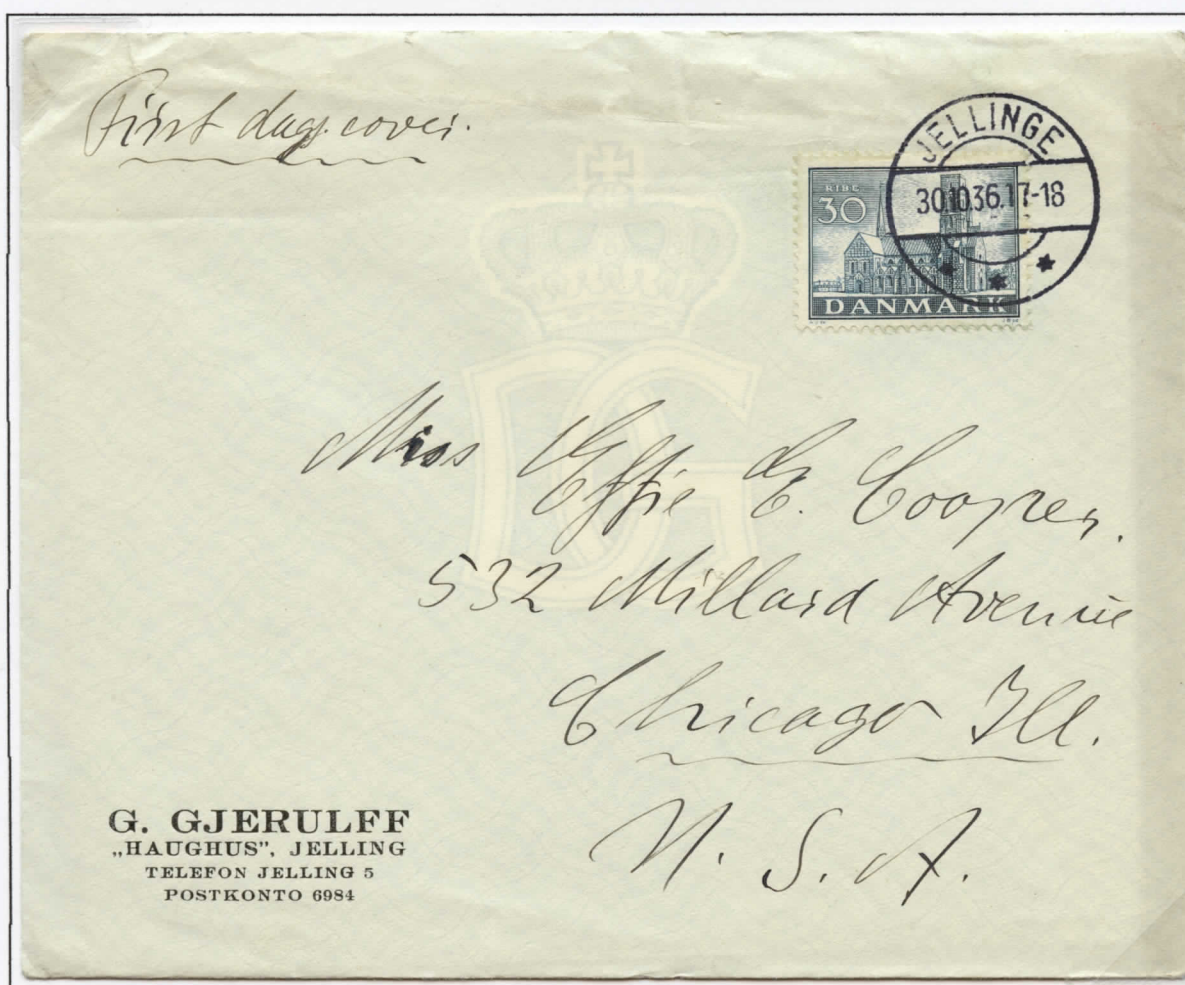 First day cover.
JELLINGE
30.10.36.17-18
RIBE
30
DANMARK
DG
Miss Effie E. Cooper.
532 Millard Avenue
Chicago Ill.
U. S. A.
G. GJERULFF
„HAUGHUS”, JELLING
TELEFON JELLING 5
POSTKONTO 6984